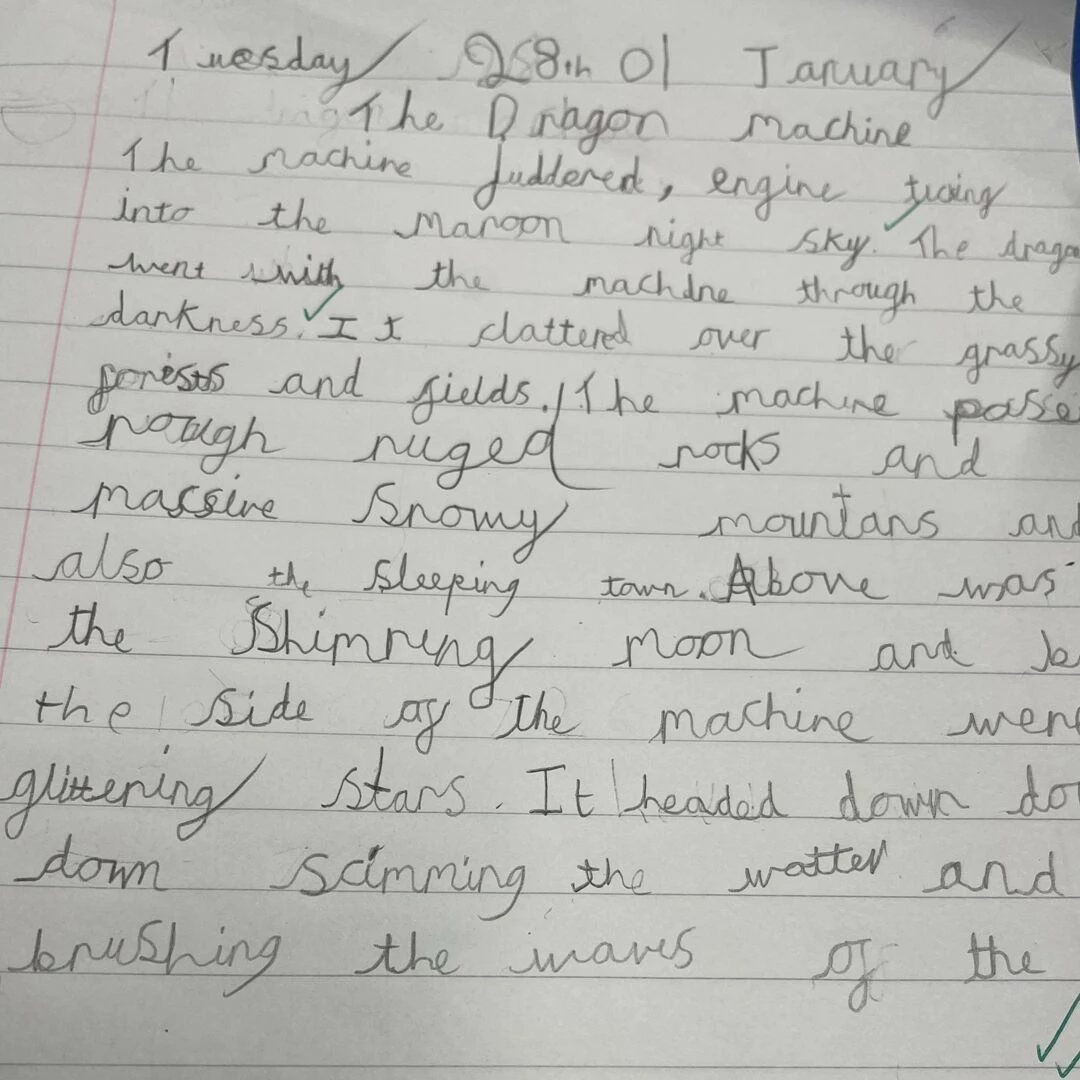 Tuesday 28th of January
The Dragon machine
The machine juddered, engine
into the maroon night sky. The drago
went with the machine through the
darkness. It clattered over the grassy
forists and fields. The machine passe
rough ruged rocks and
massive Snowy mountans and
also the sleeping town. Above was
the Shimreng moon and b
the side of the machine were
glittering stars. It headed down do
down scimming the watter and
brushing the waves of the